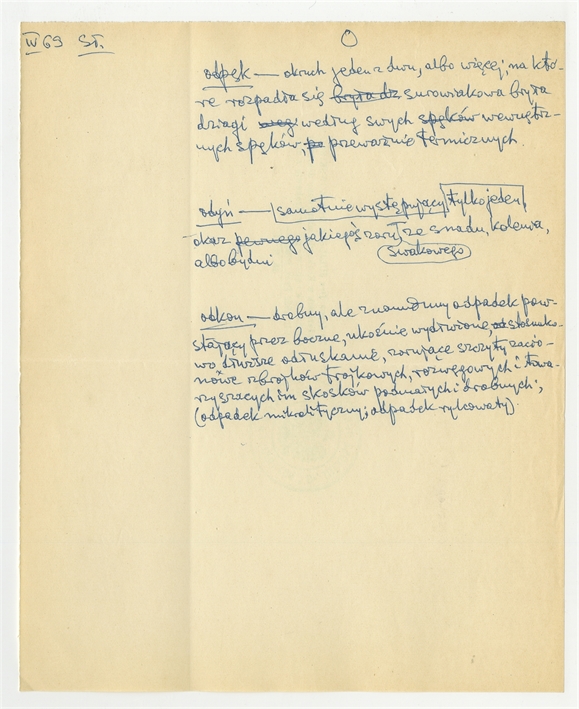 IV 69 St. O
odpęk — okruch jeden z dwu, albo więcej, na któ-
re rozpadła się bryła dz surowiakowa bryła
dziagi według swych spęków wewnętrz-
nych spęków, po przeważnie termicznych.
odyń — samotnie występujący tylko jeden
okaz pewnego jakiegoś ze snadu, kolewa,
albo bydni swakowego
odkon — drobny, ale znamienny odpadek pow-
stający przez boczne, ukośnie, od stosunko-
wo odłuskanie, szczyty zacio-
nowe zbrojków trójkowych, rozwęgowych i towa-
rzyszących im skosków podmałych i drobnych;
(odpadek mikrolityczny; odpadek rylcowaty).